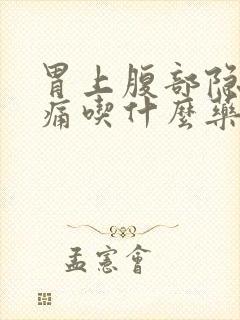 胃上腹部隐
痛喫什麼藥
孟憲會